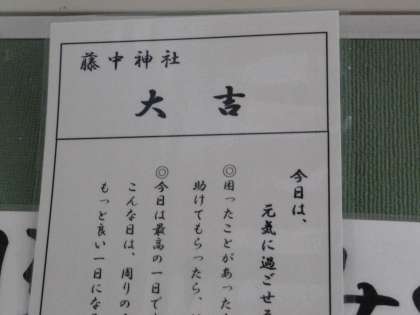 藤中神社
大吉
今日は、
元気に過ごせる
◎困ったことがあった
助けてもらったら、
◎今日は最高の一日で
こんな日は、周りの
もっと良い一日にな